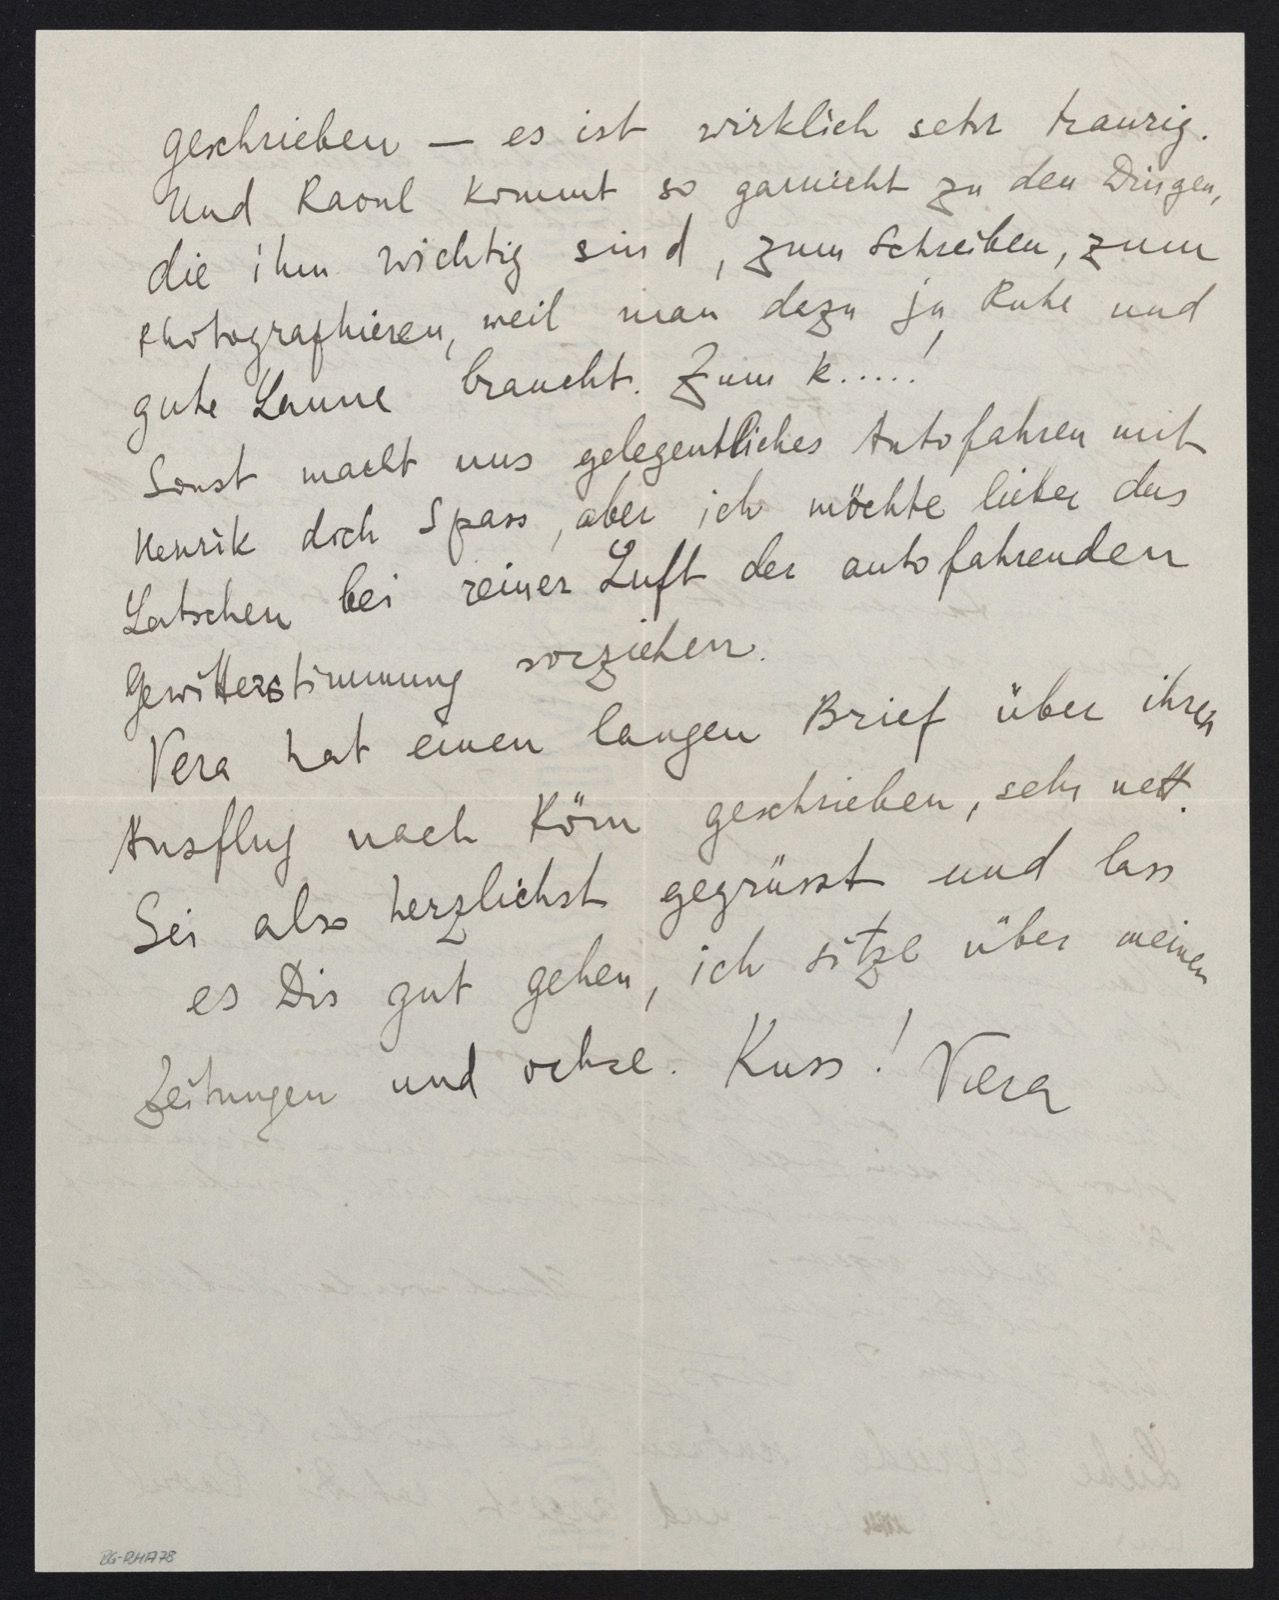 geschrieben — es ist wirklich sehr traurig.
Und Raoul kommt so garnicht zu den Dingen,
die ihm wichtig sind, zum Schreiben, zum
Photographieren, weil man dazu ja Ruhe und
gute Laune braucht. Zum k.....!
Sonst macht uns gelegentliches Autofahren mit
Henrik doch Spass, aber ich möchte lieber das
Latschen bei reiner Luft der autofahrenden
Gewitterstimmung vorziehen.
Vera hat einen langen Brief über ihren
Ausflug nach Köln geschrieben, sehr nett.
Sei also herzlichst gegrüsst und lass
es Dir gut gehen, ich sitze über meinen
Zeitungen und ochse. Kuss! Vera
BG-RHA778